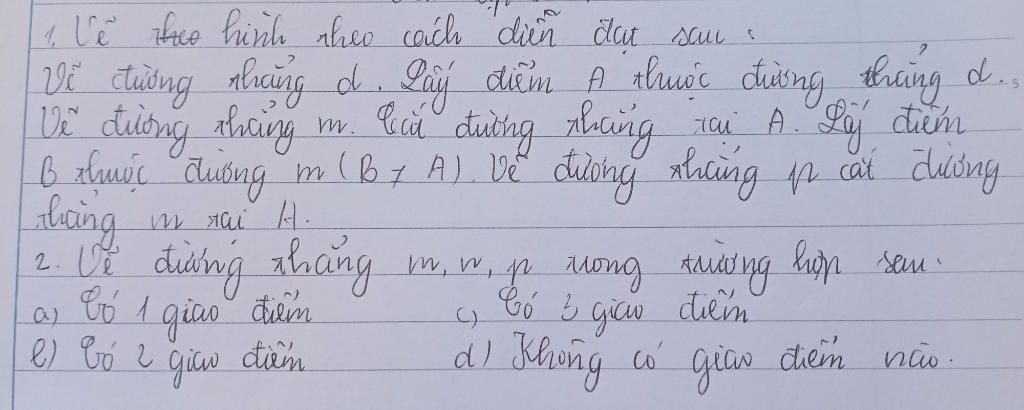 1. Vẽ theo hình theo cách diễn đạt sau:
Vẽ đường thẳng d. Lấy điểm A thuộc đường thẳng d.
Vẽ đường thẳng m. Cắt đường thẳng tại A. Lấy điểm
B thuộc đường m (B ≠ A). Vẽ đường thẳng p cắt đường
thẳng m tại H.
2. Vẽ đường thẳng m, n, p trong trường hợp sau.
a) Có 1 giao điểm c) Có 3 giao điểm
b) Có 2 giao điểm d) Không có giao điểm nào.